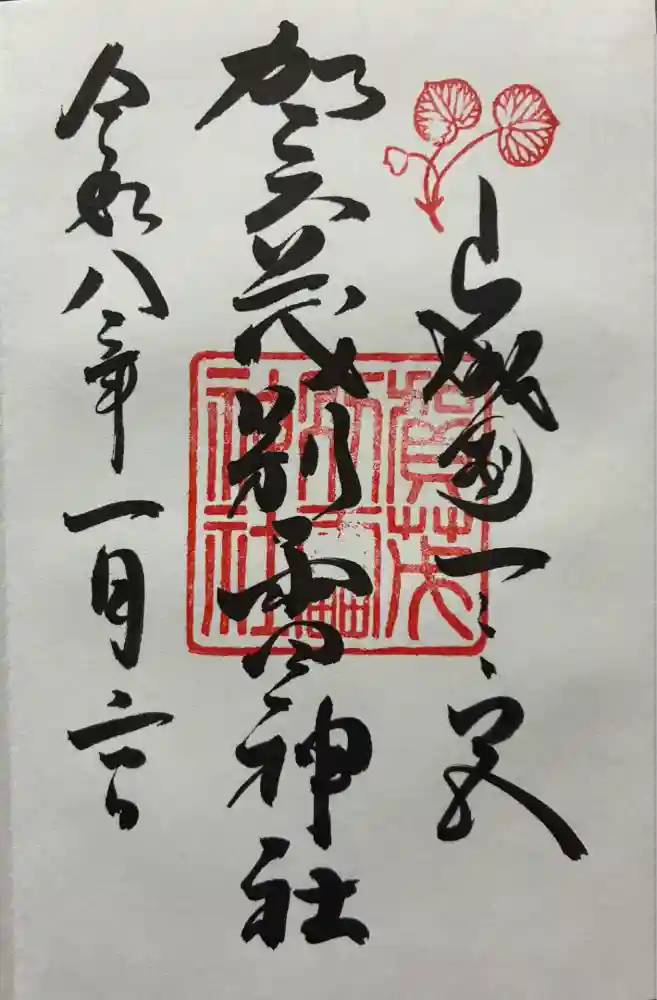 山城國一之宮
賀茂別雷神社
令和八年一月
賀茂
別雷
神社